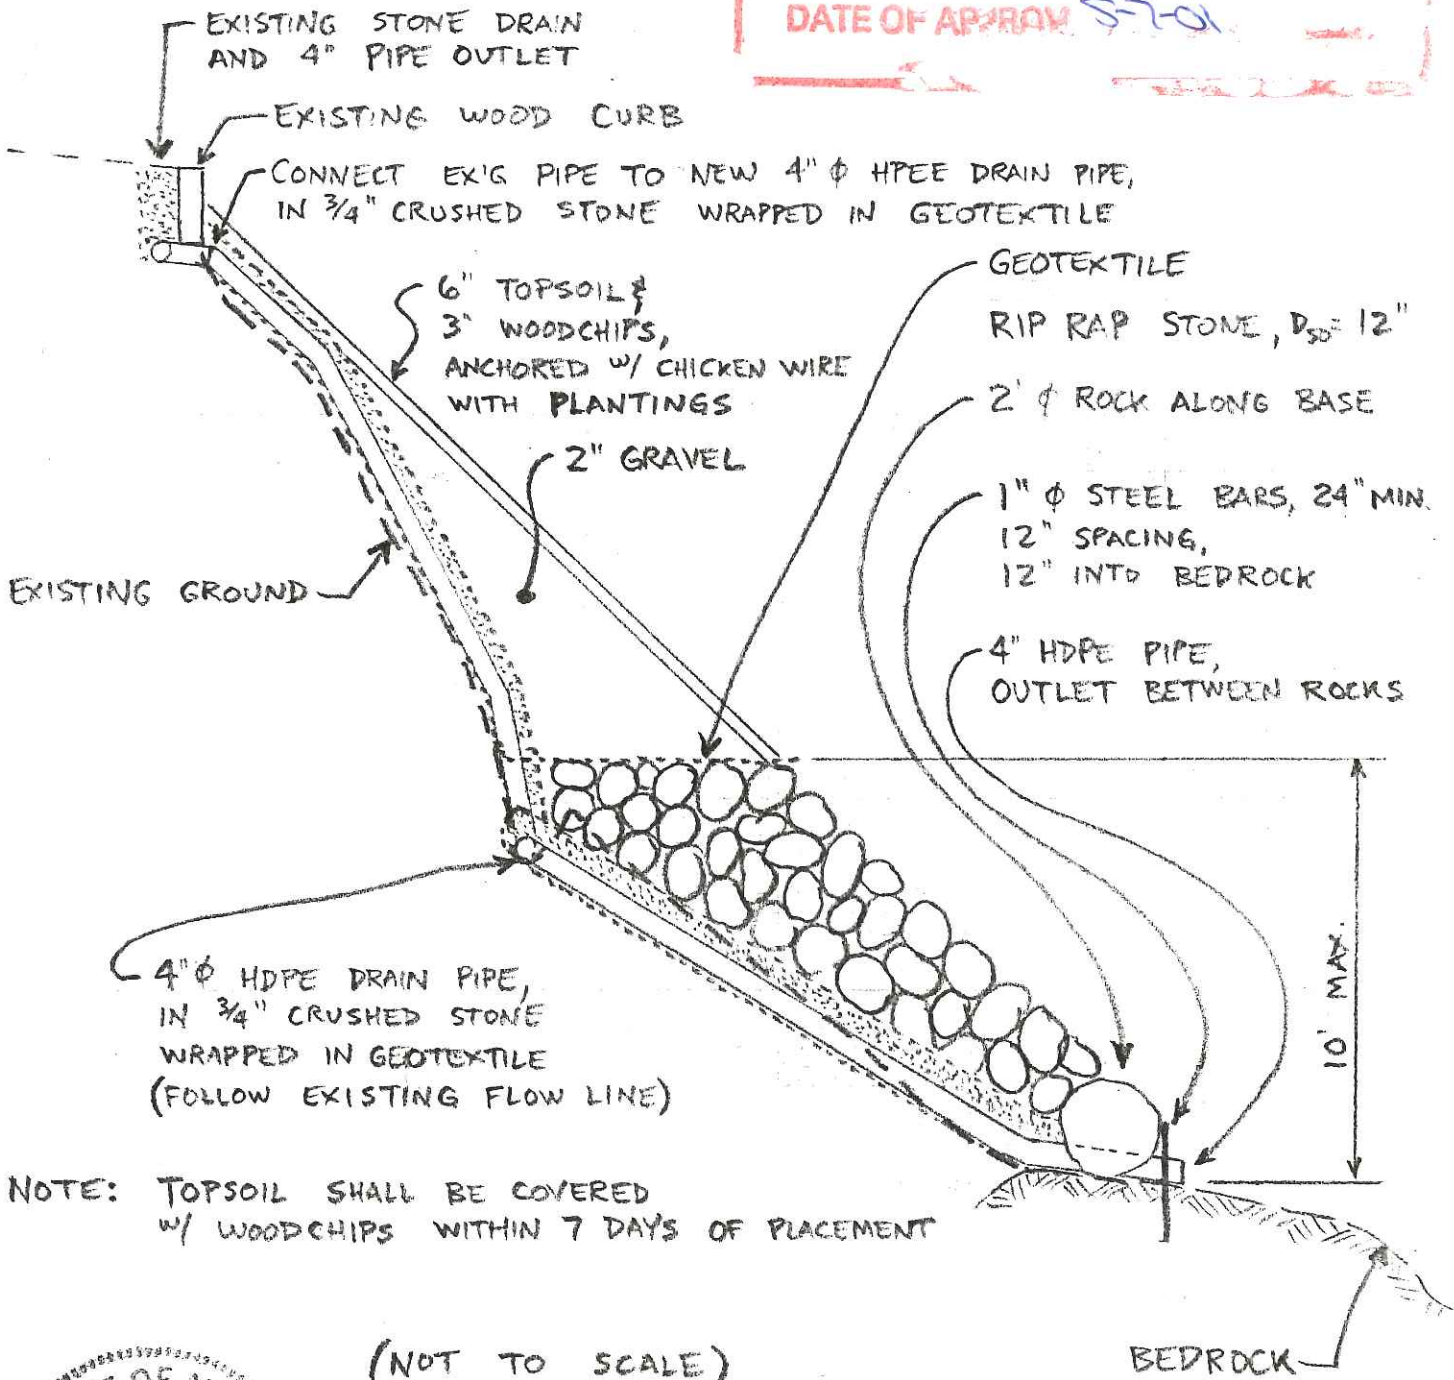 DATE OF APPROV 5-7-01
EXISTING STONE DRAIN
AND 4" PIPE OUTLET
EXISTING WOOD CURB
CONNECT EX'G PIPE TO NEW 4" ϕ HPEE DRAIN PIPE,
IN 3/4" CRUSHED STONE WRAPPED IN GEOTEXTILE
GEOTEXTILE
6" TOPSOIL &
3" WOODCHIPS,
ANCHORED W/ CHICKEN WIRE
WITH PLANTINGS
RIP RAP STONE, D50= 12"
2' ϕ ROCK ALONG BASE
2" GRAVEL
1" ϕ STEEL BARS, 24" MIN.
12" SPACING,
12" INTO BEDROCK
EXISTING GROUND
4" HDPE PIPE,
OUTLET BETWEEN ROCKS
10' MAX.
4" ϕ HDPE DRAIN PIPE,
IN 3/4" CRUSHED STONE
WRAPPED IN GEOTEXTILE
(FOLLOW EXISTING FLOW LINE)
NOTE: TOPSOIL SHALL BE COVERED
W/ WOODCHIPS WITHIN 7 DAYS OF PLACEMENT
(NOT TO SCALE)
BEDROCK
OF